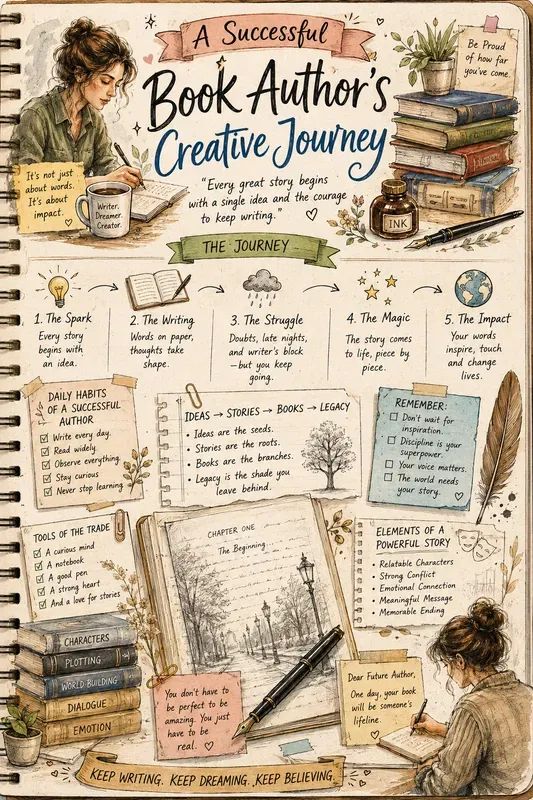 A Successful
Book Author's
Creative Journey
"Every great story begins
with a single idea and the courage
to keep writing."
Be Proud
of how far
you've come.
It's not just
about words.
It's about
impact.
Writer.
Dreamer.
Creator.
INK
THE JOURNEY
1. The Spark
Every story
begins with
an idea.
2. The Writing
Words on paper,
thoughts take
shape.
3. The Struggle
Doubts, late nights,
and writer's block
—but you keep
going.
4. The Magic
The story comes
to life, piece by
piece.
5. The Impact
Your words
inspire, touch
and change
lives.
DAILY HABITS
OF A SUCCESSFUL
AUTHOR
Write every day.
Read widely.
Observe everything.
Stay curious
Never stop learning
IDEAS → STORIES → BOOKS → LEGACY
• Ideas are the seeds.
• Stories are the roots.
• Books are the branches.
• Legacy is the shade you
leave behind.
REMEMBER:
Don't wait for
inspiration.
Discipline is your
superpower.
Your voice matters.
The world needs
your story.
TOOLS OF THE TRADE
A curious mind
A notebook
A good pen
A strong heart
And a love for stories
CHAPTER ONE
The Beginning...
ELEMENTS OF A
POWERFUL STORY
• Relatable Characters
• Strong Conflict
• Emotional Connection
• Meaningful Message
• Memorable Ending
CHARACTERS
PLOTTING
WORLD BUILDING
DIALOGUE
EMOTION
You don't have to
be perfect to be
amazing. You just
have to be
real.
Dear Future Author,
One day, your book
will be someone's
lifeline.
KEEP WRITING. KEEP DREAMING. KEEP BELIEVING.